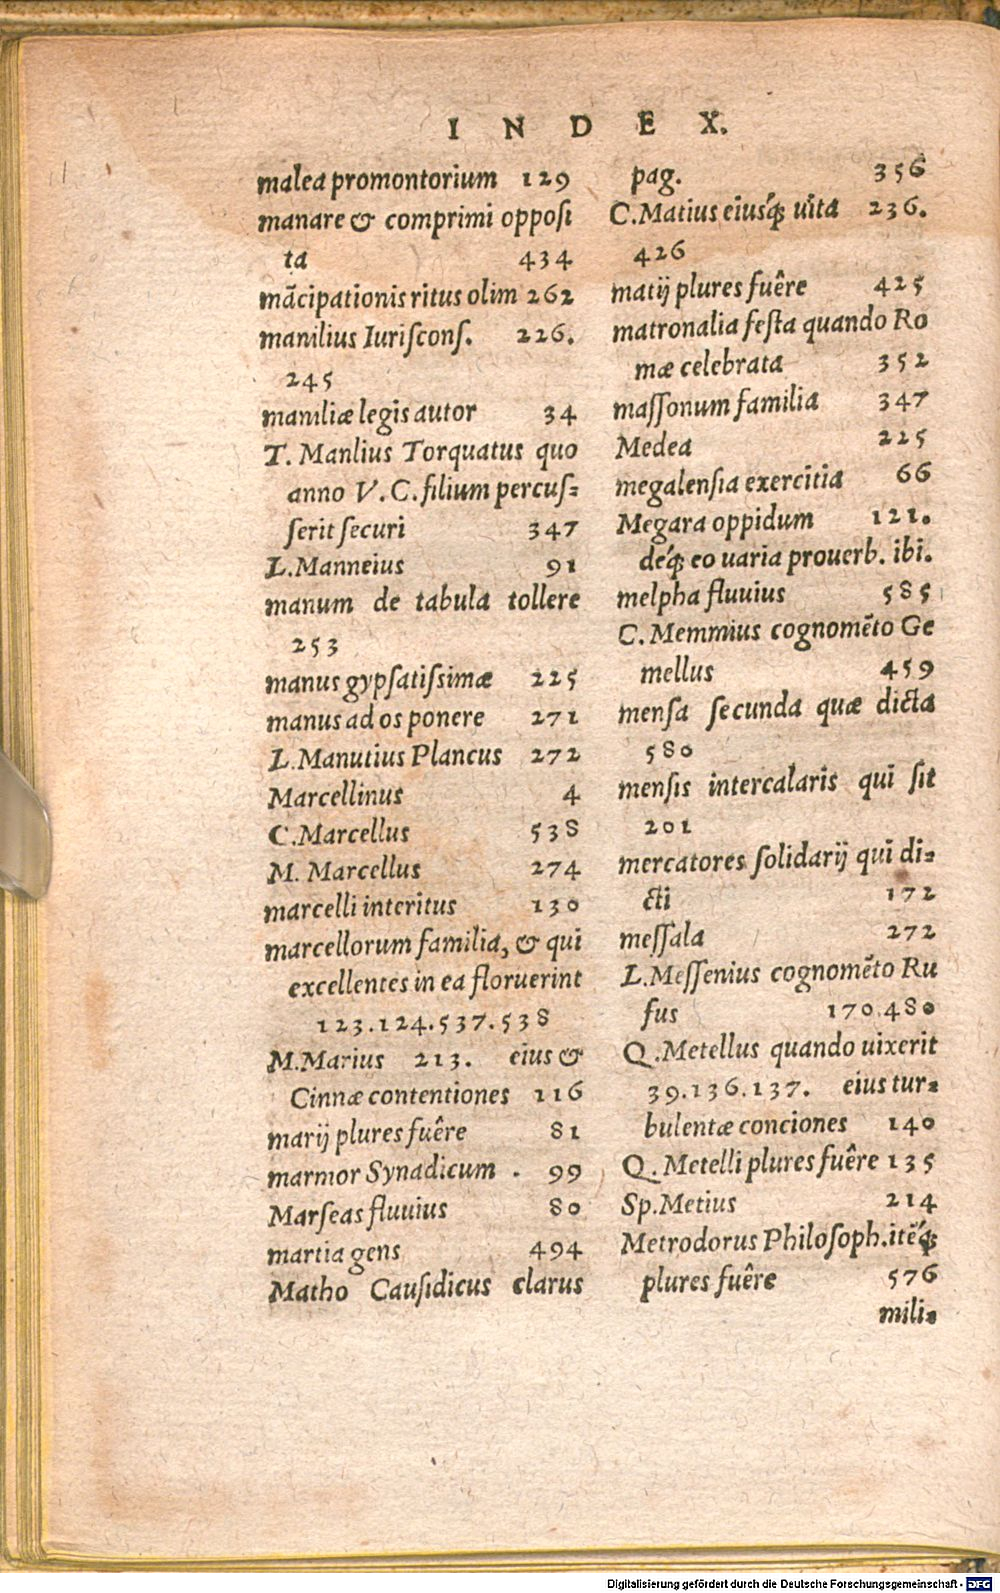 INDEX.
malea promontorium 129
manare & comprimi opposi
ta 434
mācipationis ritus olim 262
manilius Iuriſconſ. 226.
245
maniliæ legis autor 34
T. Manlius Torquatus quo
anno V.C. filium percuſ=
ſerit ſecuri 347
L.Manneius 91
manum de tabula tollere
253
manus gypſatiſsimæ 225
manus ad os ponere 271
L.Manutius Plancus 272
Marcellinus 4
C.Marcellus 538
M. Marcellus 274
marcelli interitus 130
marcellorum familia, & qui
excellentes in ea floruerint
123.124.537.538
M.Marius 213. eius &
Cinnæ contentiones 116
marij plures fuêre 81
marmor Synadicum . 99
Marſeas fluuius 80
martia gens 494
Matho Cauſidicus clarus
pag. 356
C.Matius eiusq́; uita 236.
426
matij plures fuêre 425
matronalia feſta quando Ro
mæ celebrata 352
maſſonum familia 347
Medea 225
megalenſia exercitia 66
Megara oppidum 121.
deq́; eo uaria prouerb. ibi.
melpha fluuius 585
C. Memmius cognomēto Ge
mellus 459
menſa ſecunda quæ dicta
580
menſis intercalaris qui ſit
201
mercatores ſolidarij qui di=
cti 172
meſſala 272
L.Meſſenius cognomēto Ru
fus 170.480
Q.Metellus quando uixerit
39.136.137. eius tur=
bulentæ conciones 140
Q. Metelli plures fuêre 135
Sp.Metius 214
Metrodorus Philoſoph.itēq́;
plures fuêre 576
mili=
Digitalisierung gefördert durch die Deutsche Forschungsgemeinschaft - DFG